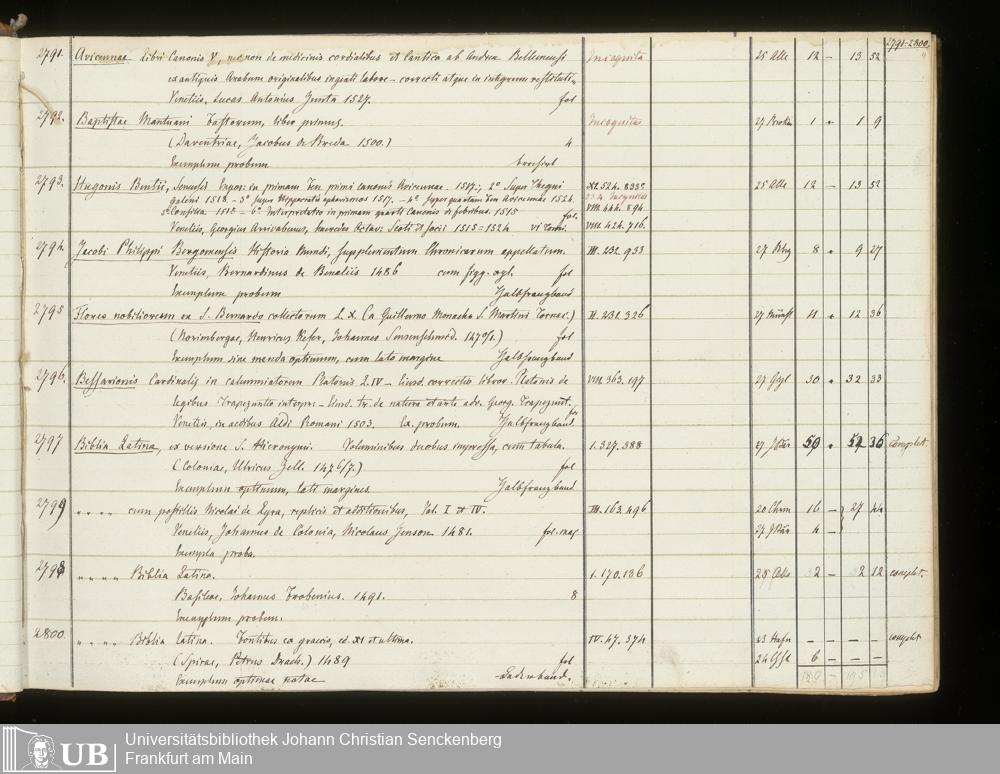 2791-2800.
2791. Avicennae Libri Canonis V, necnon de medicinis cordialibus et Cantica ab Andrea Bellunensi Incognita 25 Alle 12 – 13 52
ex antiquis Arabum originalibus ingenti labore – correcti atque in integrum restituti
Venetiis, Lucas Antonius Junta 1527. fol
2792. Baptistae Mantuani Fastorum, liber primus. Incognita 27 1 " 1 9
(Daventriae, Jacobus de Breda 1500.) 4
Exemplum probum brochirt
2793. Hugonis Bentii, Senensis Expos: in primam Fen primi canonis Avicennae. 1517.; 2º Super Tegni XI.524.833. 25 Alle 12 – 13 52
galeni 1518 – 3º super Hippocratis aphorismos 1517. – 4º super quartam Fen Avicennae 1524.
5º Consilia. 1518 – 6º Interpretatio in primam quarti Canonis de febribus. 1515 fol. VIII.446.894.
Venetiis, Georgius Arrivabenus, haeredes Octav: Scoti et socii 1515=1524 VI Tomi. VIII.424.716.
2794. Jacobi Philippi Bergomensis Historia Mundi, supplementum Chronicarum appellatum. III.232.933 27 8 " 9 27
Venetiis, Bernardinus de Benaliis 1486 cum figg. xyl. fol
Exemplum probum Halbfranzband
2795 Flores nobiliorum ex S. Bernardo collectorum L.X. (a Guillermo Monacho S. Martini Tornac.) II.231.326 27 11 " 12 36
(Norimbergae, Henricus Kefer, Johannes Sensenschmed. 1470/1.) fol
Exemplum sine menda optimum, cum lato margine Halbfranzband
2796. Bessarionis Cardinalis in calumniatorem Platonis L.IV – Eiusd. correctio libror. Platonis de VIII.363.197 27 30 " 32 33
legibus Trapezuntio interpr: – Eiusd. tr. de natura et arte adv. Georg. Trapezunt.
Venetiis, in aedibus Aldi Romani 1503. Ex. probum. fol Halbfranzband.
2797 Biblia Latina, ex versione S. Hieronymi. Voluminibus duobus impressa, cum tabula. I.327.388 27 50 " 54 36 complet.
(Coloniae, Ulricus Zell. 1476/7.) fol
Exemplum optimum, lati marginis. Halbfranzband
2799 " " " " cum postillis Nicolai de Lyra, replicis et additionibus, Vol. I et IV. III.163.496 20 Chem 16 – 27 44
Venetiis, Johannes de Colonia, Nicolaus Jenson 1481. fol. maj 27 4 –
Exempla proba.
2798 " " " " Biblia Latina. I.170.136 32 – 32 12 complet.
Basileae, Johannes Frobenius. 1491. 8
Exemplum probum.
2800. " " " " Biblia latina. Fontibus ex graecis, ed. XI et ultima. IV.47.374 23 Hafn – – – – complet
(Spirae, Petrus Drach.) 1489 fol 6 – – –
Exemplum optimae notae Lederband.
UB Universitätsbibliothek Johann Christian Senckenberg
Frankfurt am Main